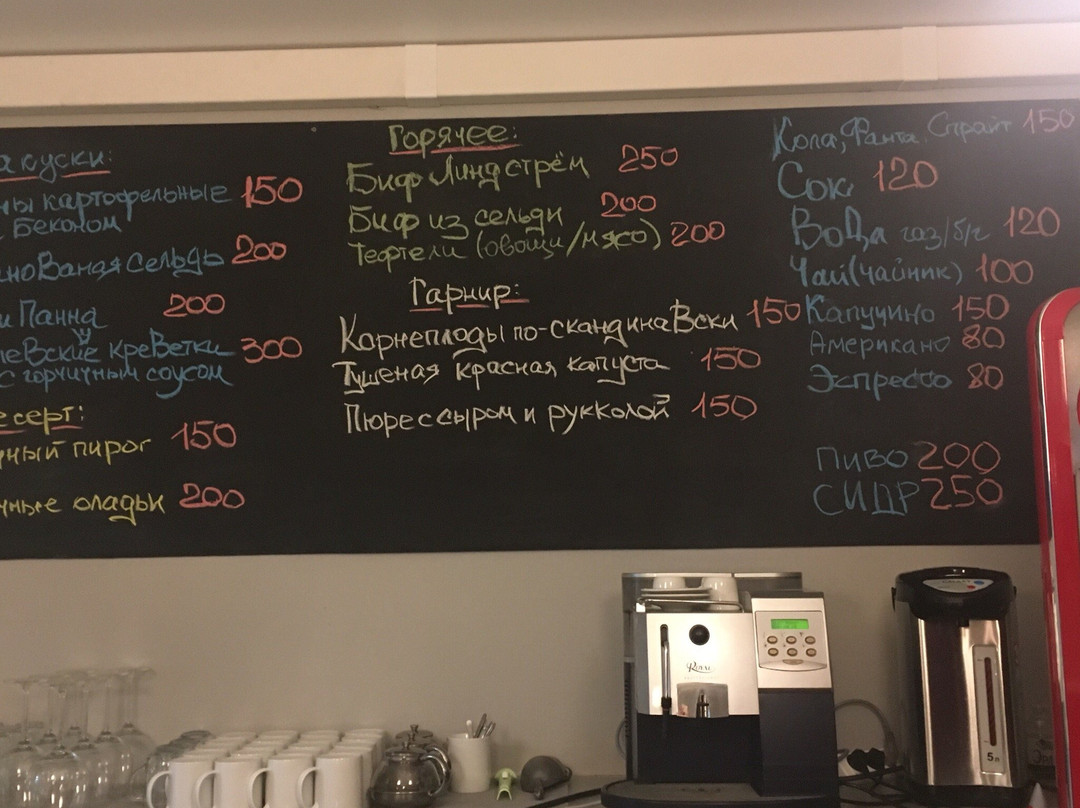 акуски:
ны картофельные 150
с Беконом
инованая сельдь 200
и Панна 200
левские креветки 300
с горчичным соусом
есерт:
чный пирог 150
чные оладьи 200
Горячее:
Биф Линдстрём 250
Биф из сельди 200
Тефтели (овощи/мясо) 200
Гарнир:
Корнеплоды по-скандинавски 150
Тушеная красная капуста 150
Пюре с сыром и рукколой 150
Кола, Фанта. Спрайт 150
Сок 120
Вода газ/б/г 120
Чай (чайник) 100
Капучино 150
Американо 80
Эспрессо 80
ПИВО 200
СИДР 250
Royal
5л